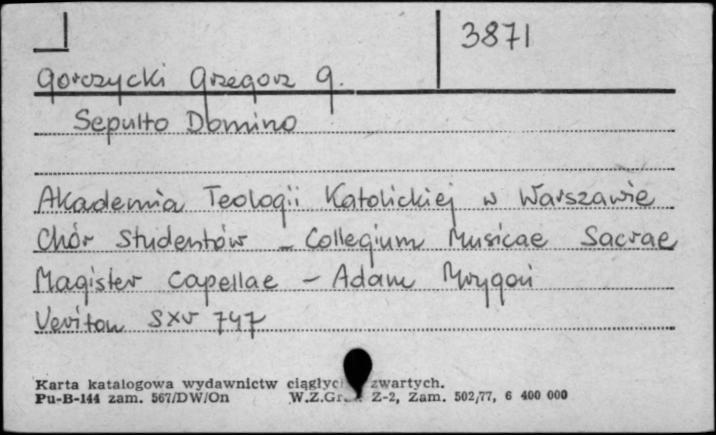 3871
Gorczycki Grzegorz G.
Sepulto Domino
Akademia Teologii Katolickiej w Warszawie
Chór Studentów - Collegium Musicae Sacrae
Magister Capellae - Adam
Veriton SXV 747
Karta katalogowa wydawnictw zwartych.
Pu-B-144 zam. 567/DW/On W.Z.Gr. Z-2, Zam. 502/77, 6 400 000